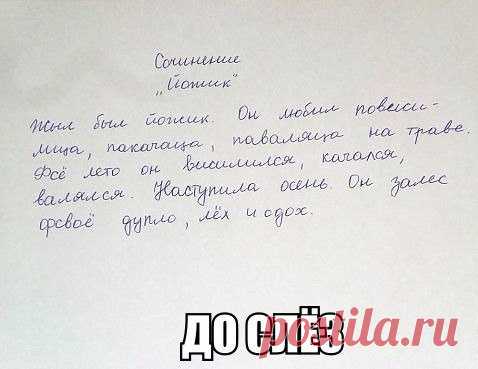 Сочинение
„Йожик“
Жыл был йожик. Он любил повеси-
лица, пакачаца, паваляца на траве.
Фсё лето он висилился, качался,
валялся. Наступила осень. Он залес
фсваё дупло, лёх и сдох.
ДО СЛЁЗ
postila.ru